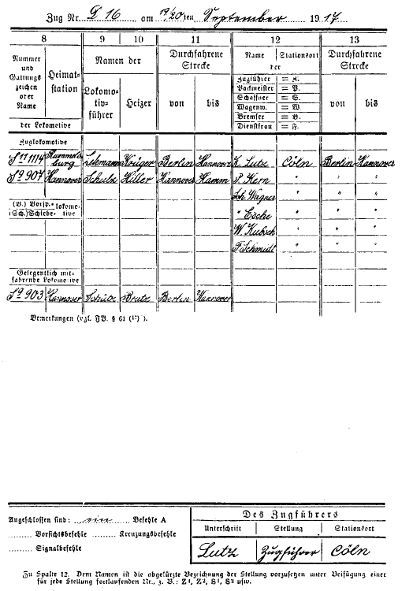 Zug Nr. D 16 am 19/20ten September 1917
8 9 10 11 12 13
Nummer und Gattungszeichen oder Name
der Lokomotive
Heimatstation
Namen der
Lokomotivführer
Heizer
Durchfahrene Strecke
von bis
Name Stationsort
der
Zugführer = F.
Packmeister = P.
Schaffner = S.
Wagenw. = W.
Bremser = B.
Dienstfrau = F.
Durchfahrene Strecke
von bis
Zuglokomotive
1114 Lehmann Krüger Berlin Hannover Z. Lutz Cöln Berlin Hannover
907 Hannover Schulz Hiller Hannover Hamm P. Kern " " "
(V.) Vorsp.= lokomo-
(Sch.)Schiebe= tive
Wagner " " "
" Esche " " "
W. " " "
F Schmidt " " "
Gelegentlich mitfahrende Lokomotive
903 Hannover Schütz Berlin Hannover
Bemerkungen (vgl. FV. § 61 (17) ).
Angeschlossen sind: ein Befehle A
Vorsichtsbefehle Kreuzungsbefehle
Signalbefehle
Des Zugführers
Unterschrift Stellung Stationsort
Lutz Zugführer Cöln
Zu Spalte 12. Dem Namen ist die abgekürzte Bezeichnung der Stellung vorzusetzen unter Beifügung einer
für jede Stellung fortlaufenden Nr., z. B.: Z¹, Z², S¹, S² usw.